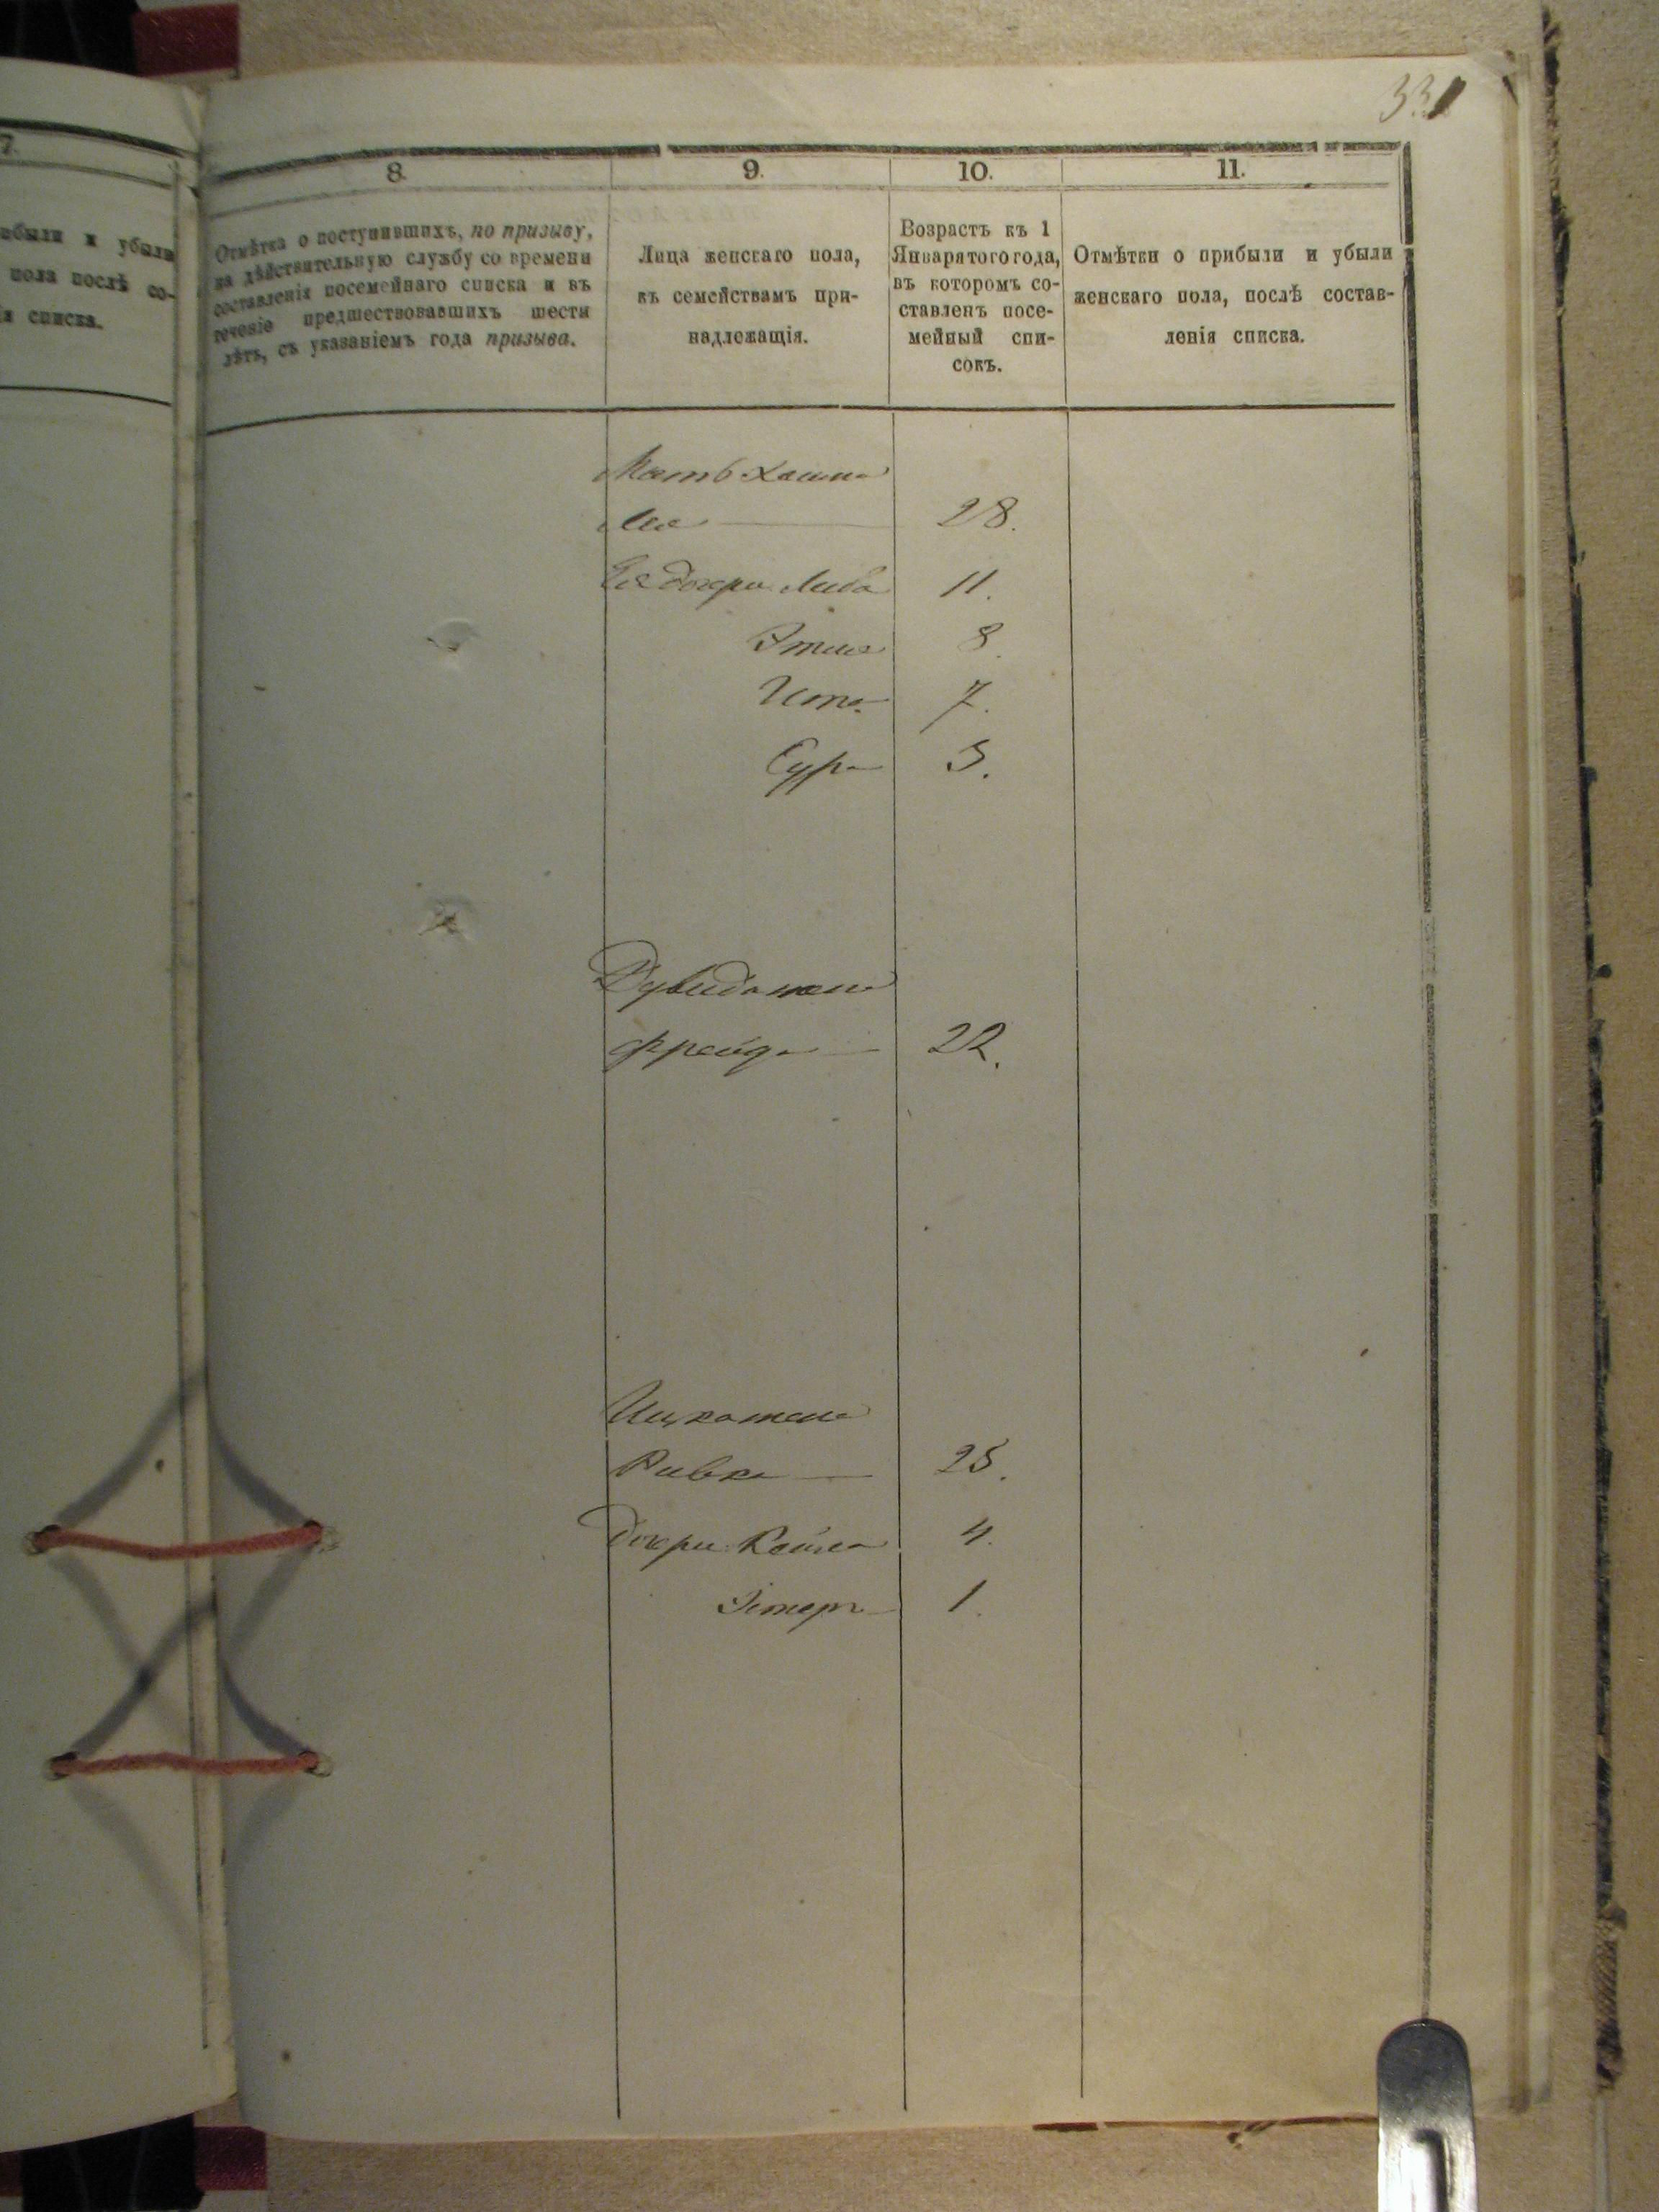 331
7.
ибыли и убыли
пола послѣ со-
ія списка.
8.
Отмѣтка о поступившихъ, по призыву,
на дѣйствительную службу со времени
составленія посемейнаго списка и въ
теченіе предшествовавшихъ шести
лѣтъ, съ указаніемъ года призыва.
9.
Лица женскаго пола,
къ семействамъ при-
надлежащія.
10.
Возрастъ къ 1
Января того года,
въ которомъ со-
ставленъ посе-
мейный спи-
сокъ.
11.
Отмѣтки о прибыли и убыли
женскаго пола, послѣ состав-
ленія списка.
Мать Хаима
Лея 28.
Ея дочери Либа 11.
Этля 8.
Ита 7.
Сура 3.
Дувида жена
Фрейда 22.
Ицка жена
Ривка 25.
дочери Кейла 4.
Эстеръ 1.